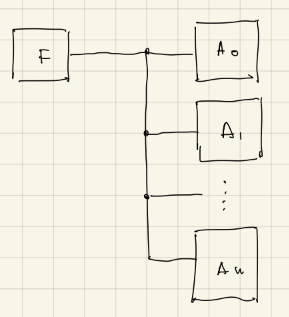 F
A0
A1
⋮
An